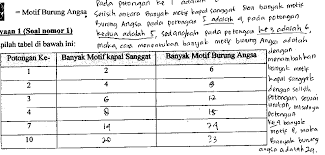 = Motif Burung Angsa
Pada potongan ke 1 adalah
selisih antara banyak motif kapal sanggat dan banyak motif
burung Angsa pada potongan 5 adalah 4, pada potongan
kedua adalah 5, sedangkan pada potongan ke 3 adalah 6,
maka cara menentukan banyak motif burung Angsa adalah
yaan 1 (Soal nomor 1)
pilah tabel di bawah ini:
Potongan Ke- Banyak Motif kapal Sanggat Banyak Motif Burung Angsa
1 2 6
2 4 9
3 6 12
4 8 15
7 14 24
10 20 33
dengan
menambahkan
banyak motif
kapal sanggat
dengan selisih
potongan sesuai
urutan, misalnya
potongan
ke 4 banyak
motif 8, maka
banyak burung
angsa adalah 24.